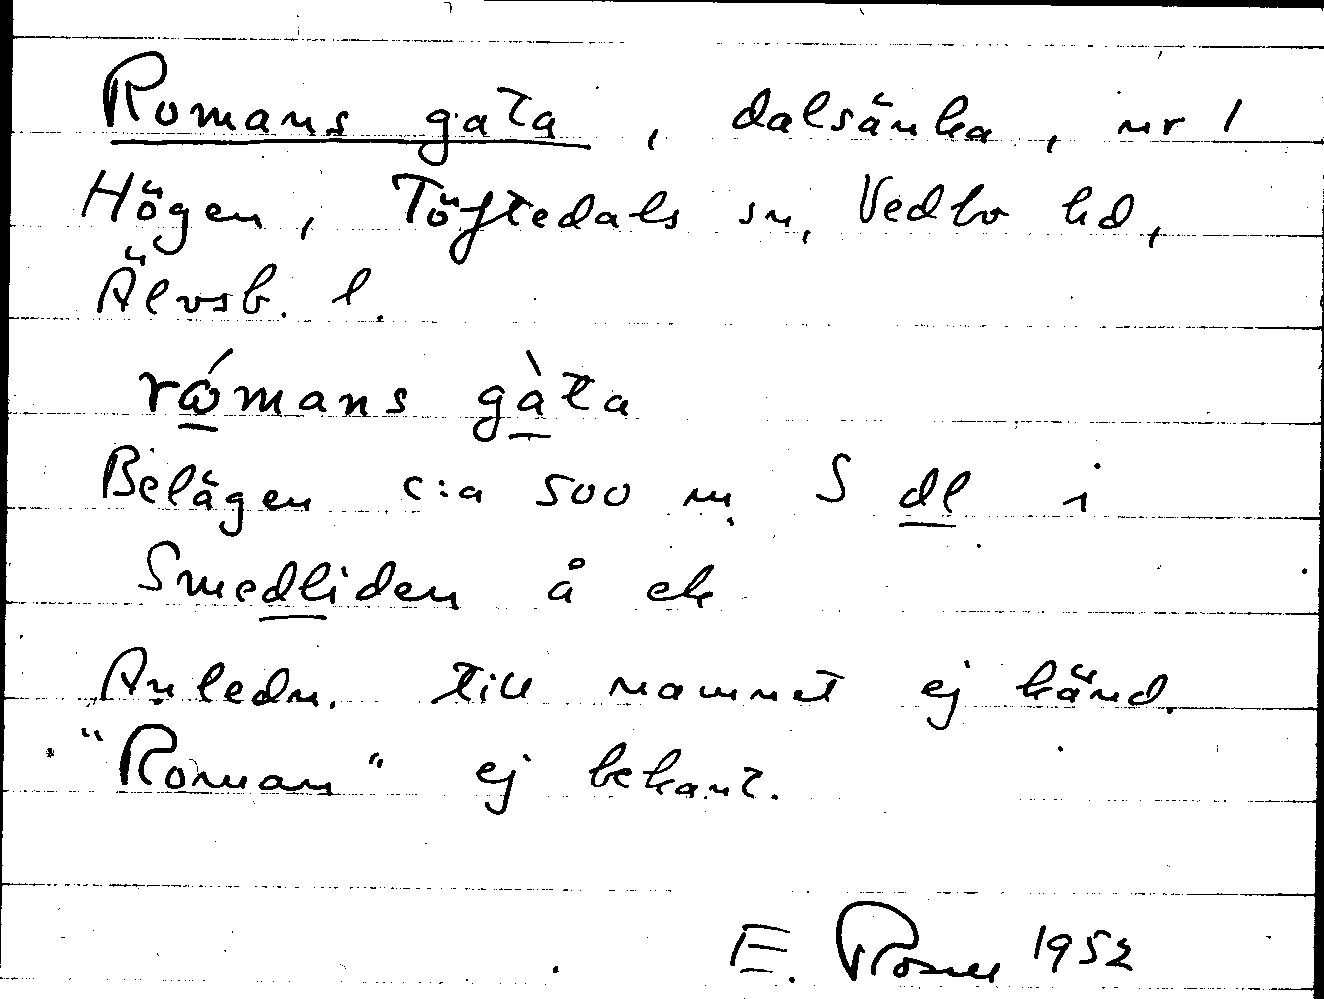 Romans gata, dalsänka, nr 1
Högen, Töftedals sn, Vedbo hd,
Älvsb. l.
rómans gàta
Belägen c:a 500 m S dl i
Smedliden å ek
Anledn. till namnet ej känd.
"Roman" ej bekant.
E. Rosell 1952